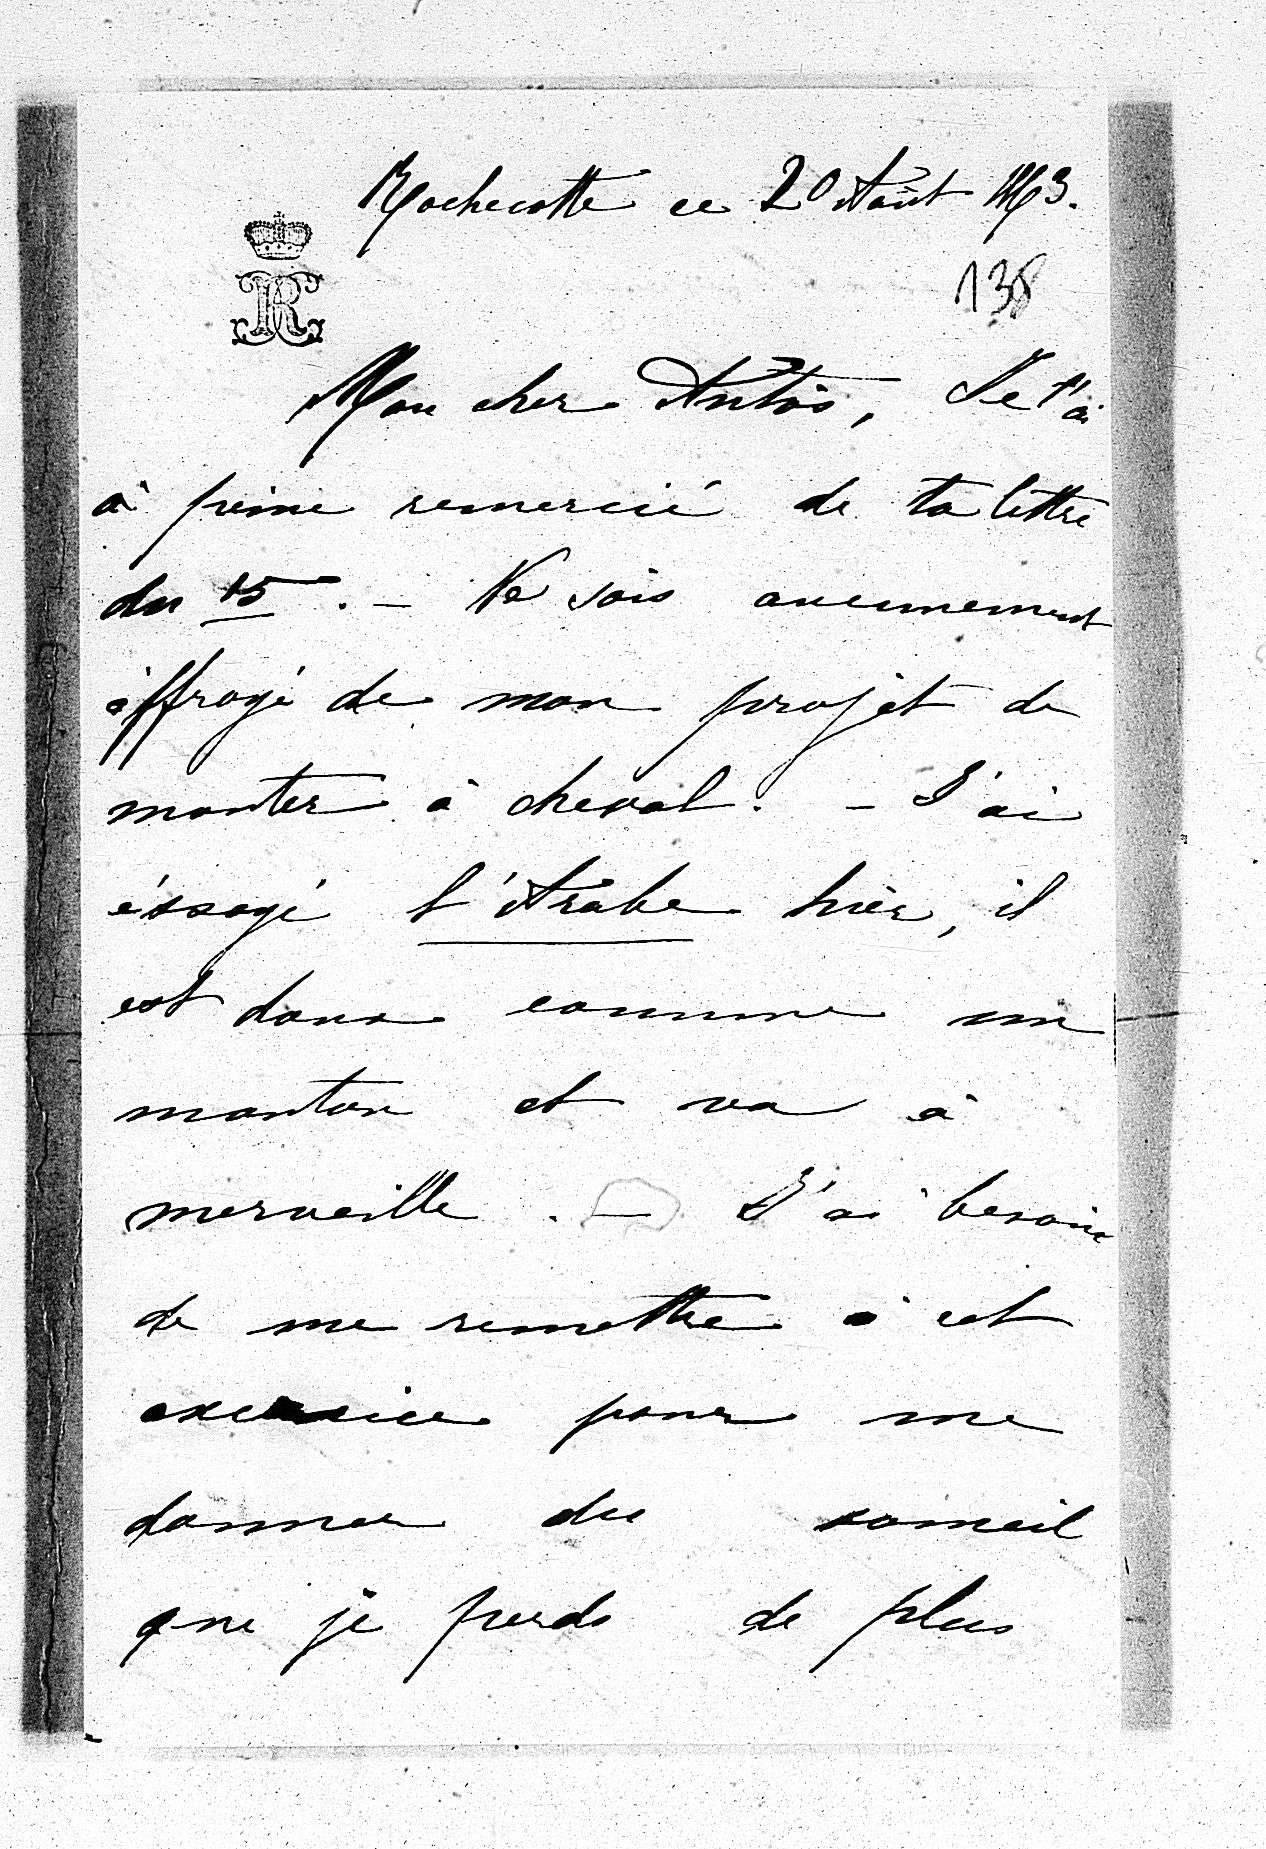 Rochecotte ce 20 Août
138
Mon cher Antoś, Je t'ai
à peine remercié de ta lettre
du 15. – Ne sois aucunement
éffrayé de mon projèt de
monter à cheval. – J'ai
éssayé l'Arabe hièr, il
est doux comme un
mouton et va à
merveille. – J'ai besoin
de me remettre à cet
exercice pour me
donner du someil
que je perds de plus